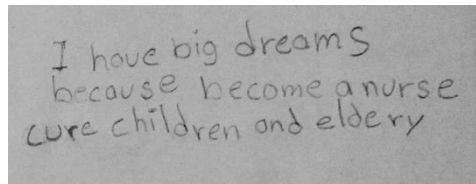 I have big dreams
because become a nurse
cure children and eldery